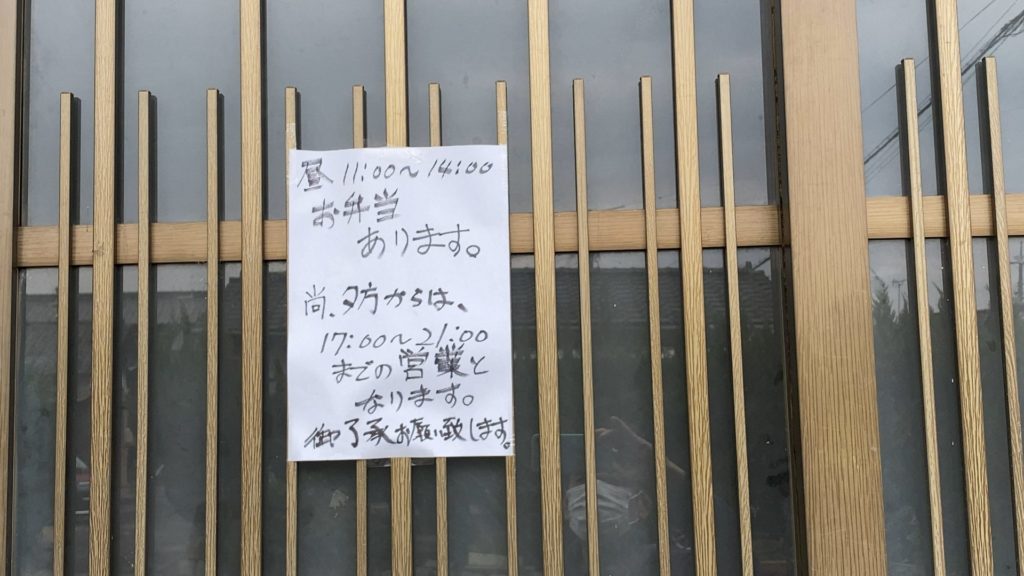 昼 11:00〜14:00
お弁当
あります。
尚、夕方からは、
17:00〜21:00
までの営業と
なります。
御了承お願い致します。